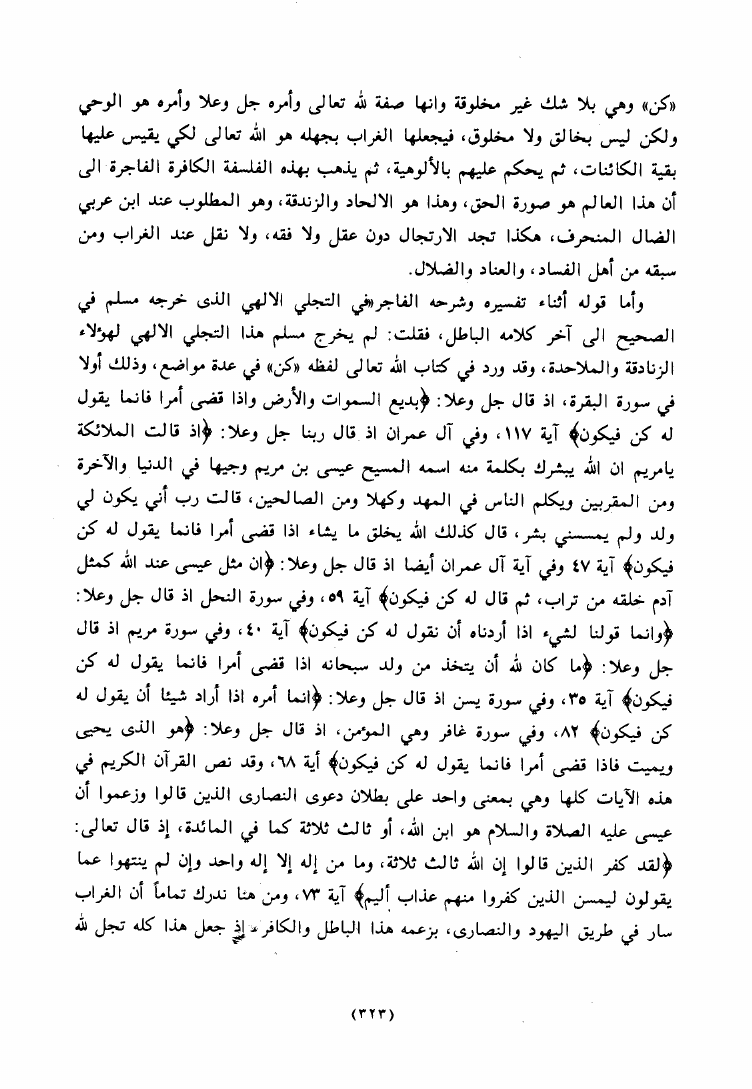 «كن» وهي بلا شك غير مخلوقة وانها صفة لله تعالى وأمره جل وعلا وأمره هو الوحي
ولكن ليس بخالق ولا مخلوق، فيجعلها الغراب بجهله هو الله تعالى لكي يقيس عليها
بقية الكائنات، ثم يحكم عليهم بالألوهية، ثم يذهب بهذه الفلسفة الكافرة الفاجرة الى
أن هذا العالم هو صورة الحق، وهذا هو الالحاد والزندقة، وهو المطلوب عند ابن عربي
الضال المنحرف، هكذا تجد الارتجال دون عقل ولا فقه، ولا نقل عند الغراب ومن
سبقه من أهل الفساد، والعناد والضلال.
وأما قوله أثناء تفسيره وشرحه الفاجر«في التجلي الالهي الذى خرجه مسلم في
الصحيح الى آخر كلامه الباطل، فقلت: لم يخرج مسلم هذا التجلي الالهي لهؤلاء
الزنادقة والملاحدة، وقد ورد في كتاب الله تعالى لفظه «كن» في عدة مواضع، وذلك أولا
في سورة البقرة، اذ قال جل وعلا: ﴿بديع السموات والأرض واذا قضى أمرا فانما يقول
له كن فيكون﴾ آية ١١٧، وفي آل عمران اذ قال ربنا جل وعلا: ﴿اذ قالت الملائكة
يامريم ان الله يبشرك بكلمة منه اسمه المسيح عيسى بن مريم وجيها في الدنيا والآخرة
ومن المقربين ويكلم الناس في المهد وكهلا ومن الصالحين، قالت رب أني يكون لي
ولد ولم يمسسني بشر، قال كذلك الله يخلق ما يشاء اذا قضى أمرا فانما يقول له كن
فيكون﴾ آية ٤٧ وفي آية آل عمران أيضا اذ قال جل وعلا: ﴿ان مثل عيسى عند الله كمثل
آدم خلقه من تراب، ثم قال له كن فيكون﴾ آية ٥٩، وفي سورة النحل اذ قال جل وعلا:
﴿وانما قولنا لشيء اذا أردناه أن نقول له كن فيكون﴾ آية ٤٠، وفي سورة مريم اذ قال
جل وعلا: ﴿ما كان لله أن يتخذ من ولد سبحانه اذا قضى أمرا فانما يقول له كن
فيكون﴾ آية ٣٥، وفي سورة يسن اذ قال جل وعلا: ﴿انما أمره اذا أراد شيئا أن يقول له
كن فيكون﴾ ٨٢، وفي سورة غافر وهي المؤمن، اذ قال جل وعلا: ﴿هو الذى يحيى
ويميت فاذا قضى أمرا فانما يقول له كن فيكون﴾ أية ٦٨، وقد نص القرآن الكريم في
هذه الآيات كلها وهي بمعنى واحد على بطلان دعوى النصارى الذين قالوا وزعموا أن
عيسى عليه الصلاة والسلام هو ابن الله، أو ثالث ثلاثة كما في المائدة، إذ قال تعالى:
﴿لقد كفر الذين قالوا إن الله ثالث ثلاثة، وما من إله إلا إله واحد وإن لم ينتهوا عما
يقولون ليمسن الذين كفروا منهم عذاب أليم﴾ آية ٧٣، ومن هنا ندرك تماماً أن الغراب
سار في طريق اليهود والنصارى، بزعمه هذا الباطل والكافر إذ جعل هذا كله تجل لله
(٣٢٣)